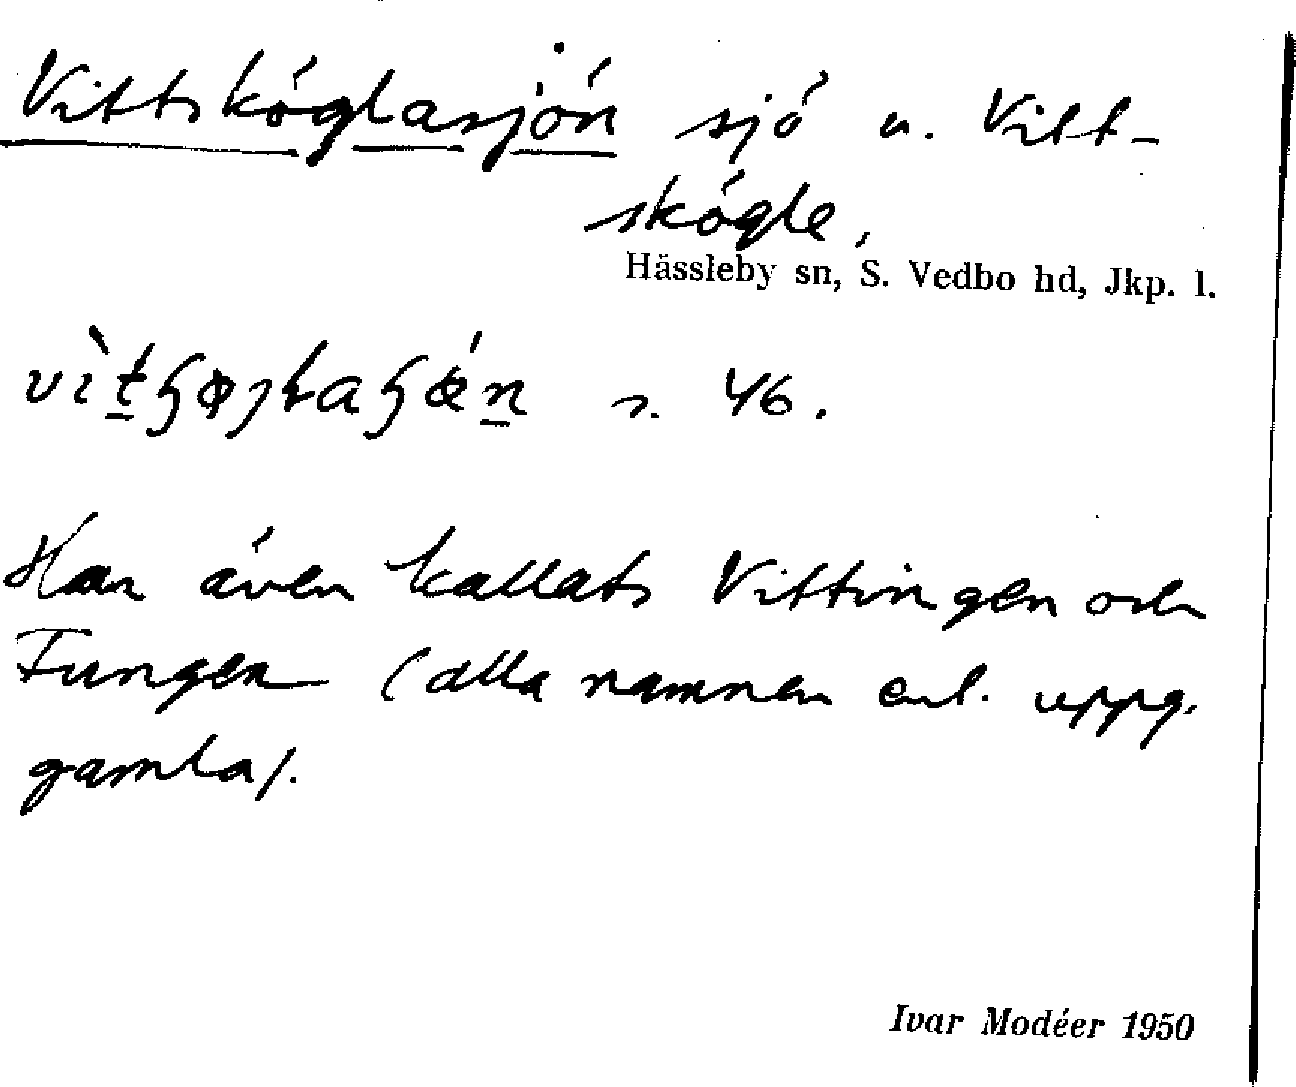 Vittsköglasjön sjö u. Vitt-
skögle,
Hässleby sn, S. Vedbo hd, Jkp. l.
s. 46.
Har även kallats Vittingen och
Fungen (alla namnen enl. uppg.
gamla).
Ivar Modéer 1950